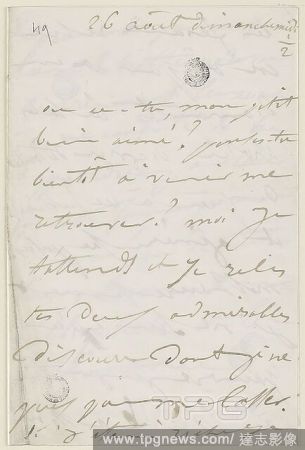 49
26 août dimanche midi
1/2
où es-tu, mon petit
bien aimé? penses-tu
bientôt à venir me
retrouver? moi je
t'attends et je relis
tes deux admirables
discours dont je ne
puis pas me lasser.
TPG
www.tpgnews.com / 達志影像